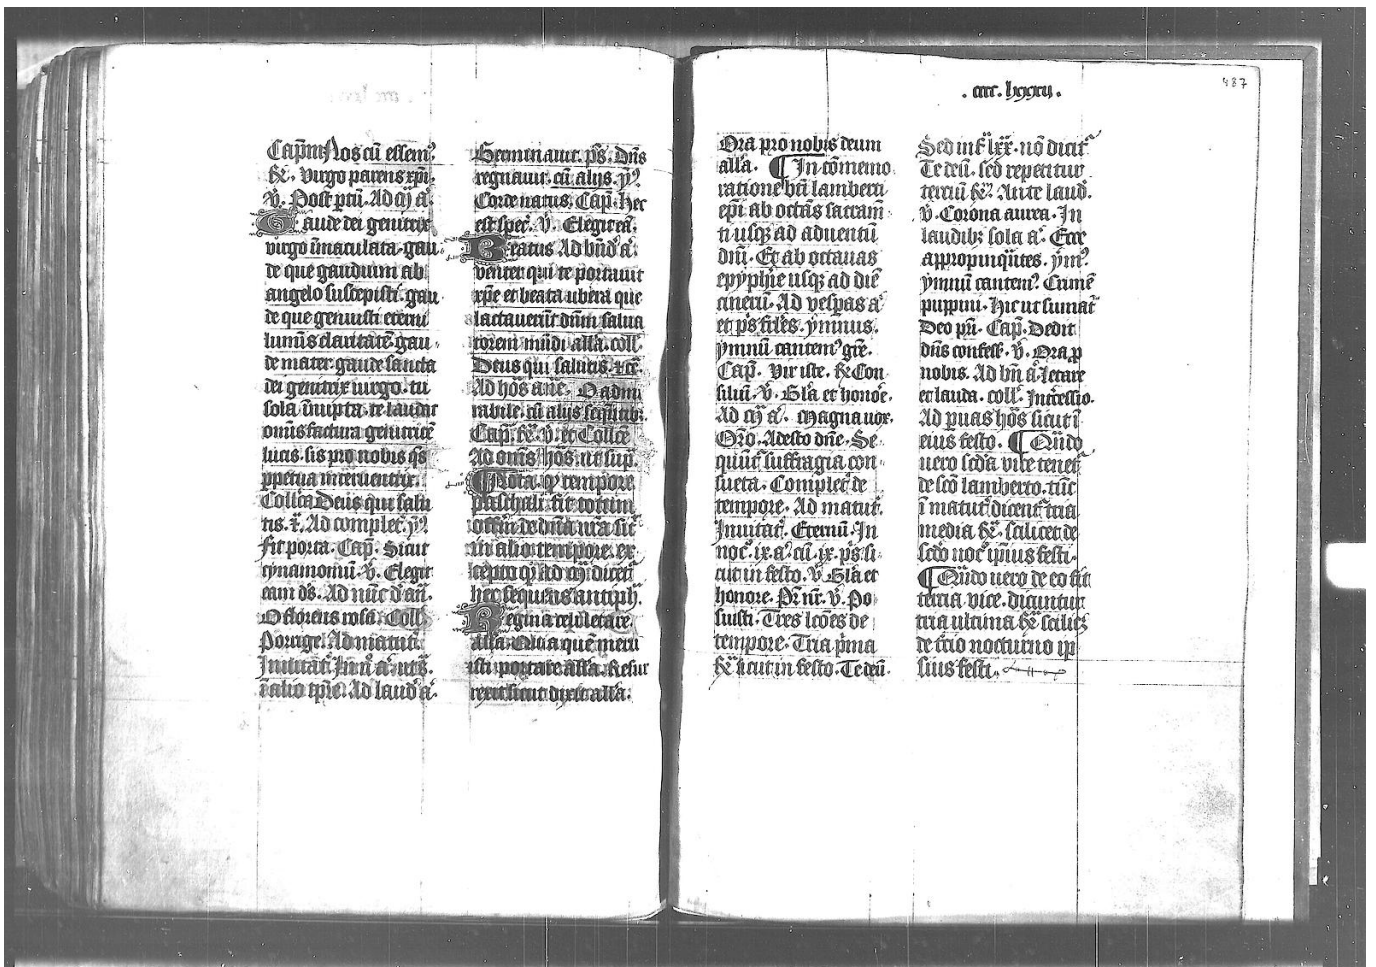 Cap̄m Nos cū essem᷒
℟. Virgo parens xp̄i.
℣. Post ptū. Ad cij a᷒.
Gaude dei genitrix
virgo īmaculata. gau
de que gaudium ab
angelo suscepisti. gau
de que genuisti eterni
luminis claritatē. gau
de mater. gaude sancta
dei genitrix virgo. tu
sola īnupta. te laudat
omīs factura genitricē
lucis. sis pro nobis q̄s
ꝑpetua interventrix.
Coll̄ca Deus qui salu
tis. Ad complet᷒. p᷒s
Sit porta. Cap̄. Sicut
cynamomū. ℣. Elegit
eam dš. Ad nūc d̄ añ.
O florens rosa. Coll᷒
Porrige. Ad matuti᷒.
Invitat᷒.
ī alio tp̄re. Ad laud᷒ a᷒.
Germinavit. p̄s. Dn̄s
regnavit. cū alijs. ym᷒
Corde natus. Cap̄. Hec
est spec᷒. ℣. Elegit eā.
Beatus Ad bn̄d᷒ a᷒.
venter qui te portavit
xp̄e et beata ubera que
lactaverūt dn̄m salva
torem mūdi all̄a. coll᷒.
Deus qui salutis. et c̄.
Ad hōs añe. O admi
rabile. cū alijs sequētib᷒.
Cap̄. ℟. ℣. et Coll̄ce
Ad om̄s hōs. ut sup̄.
Nota. ꝙ tempore
paschali. fit totum
offm̄ de dn̄a nr̄a sic᷒
in alio tempore. ex
cepto ꝙ ad cij dicet᷒
hec sequens antiph᷒.
Regina celi letare
all̄a. Quia quē meru
isti portare all̄a. Resur
rexit sicut dixit all̄a.
. cccc. lxxxij .
487
Ora pro nobis deum
all̄a. In cōmemo
ratione bt̄i lamberti
ep̄i ab octās sacram᷒
ti usqꝫ ad adventū
dn̄i. Et ab octavas
epyphie usqꝫ ad diē
cinerū. Ad vesp̄as a᷒
et p̄s fil̄es. ymnus.
ymnū cantem᷒ gr̄e.
Cap̄. Vir iste. ℟ Con
siliū. ℣. Gl̄a et honor̄e.
Ad cij a᷒. Magna vox.
Orō. Adesto dn̄e. Se
quūt᷒ suffragia con
sueta. Complet᷒ de
tempore. Ad matut᷒.
Invitat᷒. Eternū. In
noc᷒. ix. a᷒. cū. ix. p̄s si
cut in festo. ℣. Gl̄a et
honore. Pr̄ nr̄. ℣. Po
suisti. Tres lc̄ones de
tempore. Tria p̄ma
℟. sicut in festo. Te deū.
Sed inf᷒ lxx. nō dicit᷒
Te deū. sed repetitur
terciū ℟. Ante laud᷒.
℣. Corona aurea. In
laudibꝫ sola a᷒. Ecce
appropinq̄ntes. ym᷒.
ymnū cantem᷒. Crimē
puppim. Hic ut sumat᷒
Deo pr̄i. Cap̄. Dedit
dn̄s confess᷒. ℣. Ora ꝑ
nobis. Ad bn̄ a᷒. Letare
et lauda. coll᷒. Int̄cessio.
Ad p̄vas hōs sicut ī
eius festo. Qn̄do
vero scd̄a vice tenet᷒
de scō lamberto. tūc
ī matut᷒ dicent᷒ tria
media ℟. scilicet de
scd̄o noc᷒. ip̄ius festi.
Qn̄do vero de eo fit
tercia vice. dicuntur
tria ultima ℟. scilicꝫ
de t̄cio nocturno ip̄
sius festi.